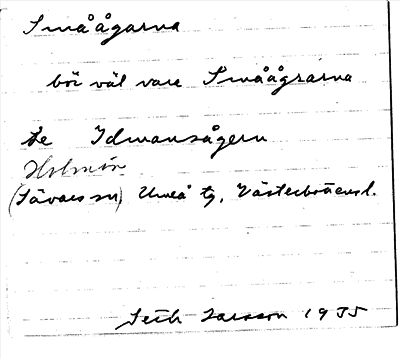 Småågarna
bör väl vara Småågrarna
Se Idmansågern
Holmön
(Sävars sn) Umeå tg, Västerbottensl.
Seth Larsson 1935